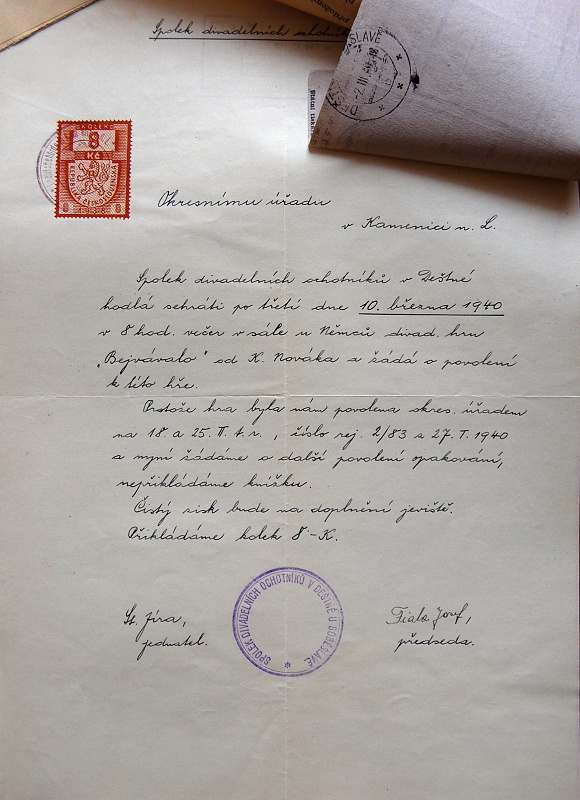 Spolek divadelních ochotníků
8
Kč
8 8
Okresnímu úřadu
v Kamenici n. L.
Spolek divadelních ochotníků v Deštné
hodlá sehráti po třetí dne 10. března 1940
v 8 hod. večer v sále u Němců divad. hru
„Bejvávalo" od K. Nováka a žádá o povolení
k této hře.
Protože hra byla nám povolena okres. úřadem
na 18. a 25. II. t. r., číslo rej. 2/83 z 27. I. 1940
a nyní žádáme o další povolení opakování,
nepřikládáme knížku.
Čistý zisk bude na doplnění jeviště.
Přikládáme kolek 8 -K.
SPOLEK DIVADELNÍCH OCHOTNÍKŮ V DEŠTNÉ U SOBĚSLAVĚ
St. Jíra,
jednatel.
Fiala Josef,
předseda.